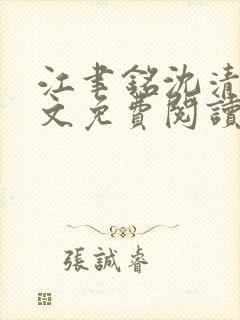 江聿銘沈清
文免費閱讀
張誠睿